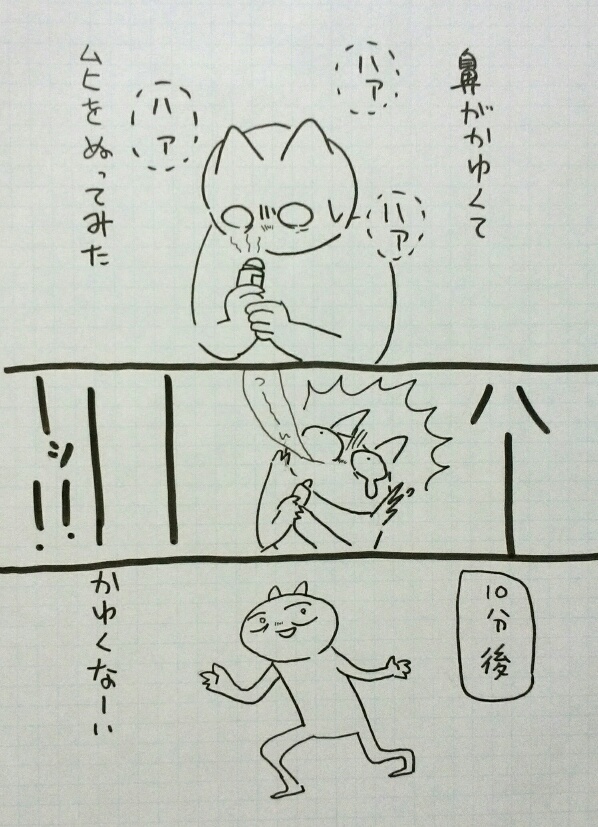 鼻がかゆくて
ハァ
ハァ
ハァ
ムヒをぬってみた
ハーーーーッ!!
10分後
かゆくなーい